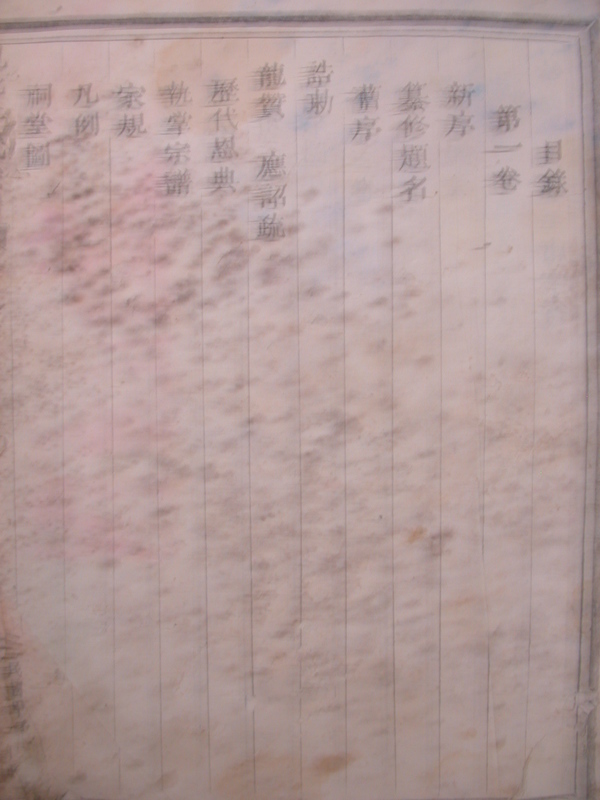 目錄
第一卷
新序
纂修題名
舊序
誥勅
龍章 應詔疏
歷代恩典
執掌宗譜
宗規
凡例
祠堂圖